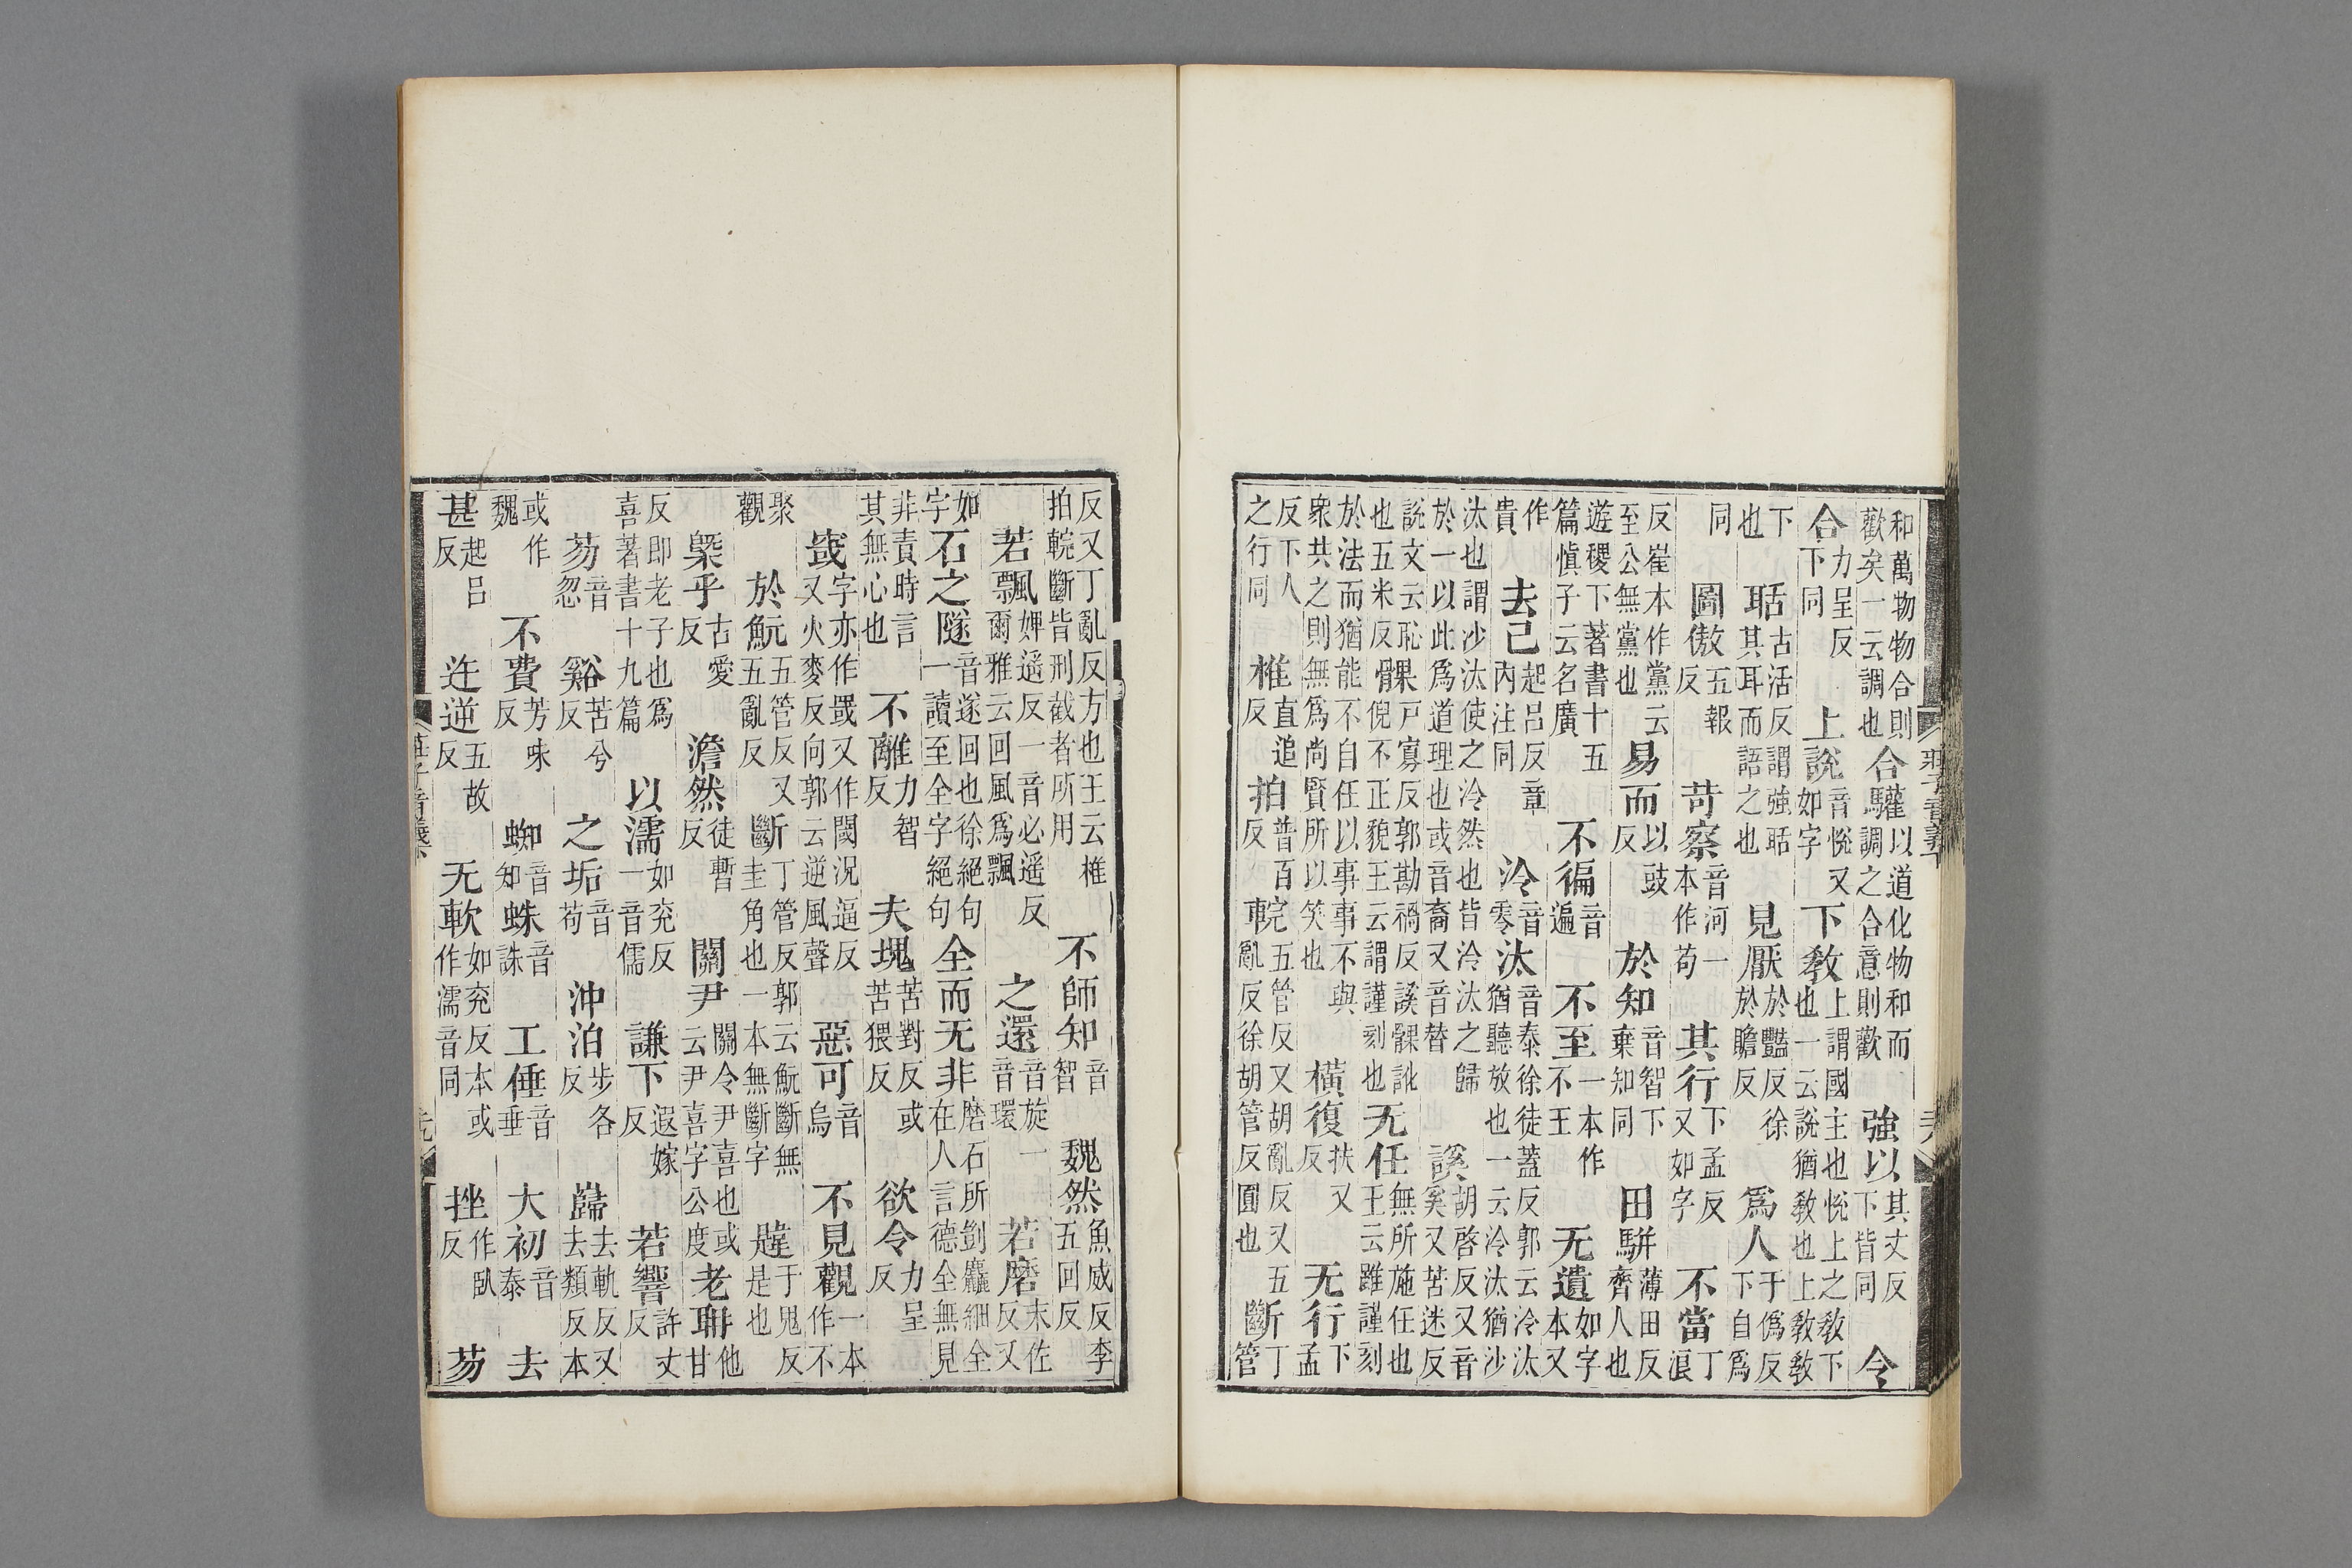 莊子音義下
和萬物物合則歡矣一云調也合驩以道化物和而調之合意則歡強以其丈反下皆同令
合力呈反下同上說音悅又如字下敎上謂國主也悅上之敎下也一云說猶敎也上敎敎
下也聒古活反謂強聒其耳而語之也見厭於豔反徐於贍反爲人于僞反下自爲
同圖傲五報反苛察音河一本作苟其行下孟反又如字不當丁浪
反崔本作黨云至公無黨也易而以豉反於知音智下棄知同田駢薄田反齊人也
遊稷下著書十五篇愼子云名廣不徧音遍不至一本作不王无遺如字本又
作貴去己起呂反章內注同泠音零汰音泰徐徒蓋反郭云泠汰猶聽放也一云泠汰猶沙
汰也謂沙汰使之泠然也皆泠汰之歸於一以此爲道理也或音裔又音替謑胡啓反又音奚又苦迷反
說文云恥也五米反髁戸寡反郭勘禍反謑髁訛倪不正貌王云謂謹刻也无任無所施任也王云雖謹刻
於法而猶能不自任以事事不與衆共之則無爲尚賢所以笑也橫復扶又反无行下孟
反下人之行同椎直追反拍普百反輐五管反又胡亂反又五亂反徐胡管反圓也斷丁管
反又丁亂反方也王云椎拍輐斷皆刑截者所用不師知音智魏然魚威反李五回反
若飄婢遙反一音必遙反爾雅云回風爲飄之還音旋一音環若磨末佐反又
如字石之隧音遂回也徐絕句一讀至全字絕句全而无非磨石所剴麤細全在人言德全無見
非責時言其無心也不離力智反夫塊苦對反或苦猥反欲令力呈反
窢字亦作罭又作閾況逼反又火麥反向郭云逆風聲惡可音烏不見觀一本作不
聚觀於魭五管反又五亂反斷丁管反郭云魭斷無圭角也一本無斷字韙于鬼反是也
槩乎古愛反澹然徒暫反關尹關令尹喜也或云尹喜字公度老聃他甘
反即老子也爲喜著書十九篇以濡如兗反一音儒謙下遐嫁反若響許丈反
芴音忽谿苦兮反之垢音苟沖泊步各反巋去軌反又去類反本
或作魏不費芳味反蜘音知蛛音誅工倕音垂大初音泰去
甚起呂反迕逆五故反无軟如兗反本或作濡音同挫作臥反芴
莊子音義下